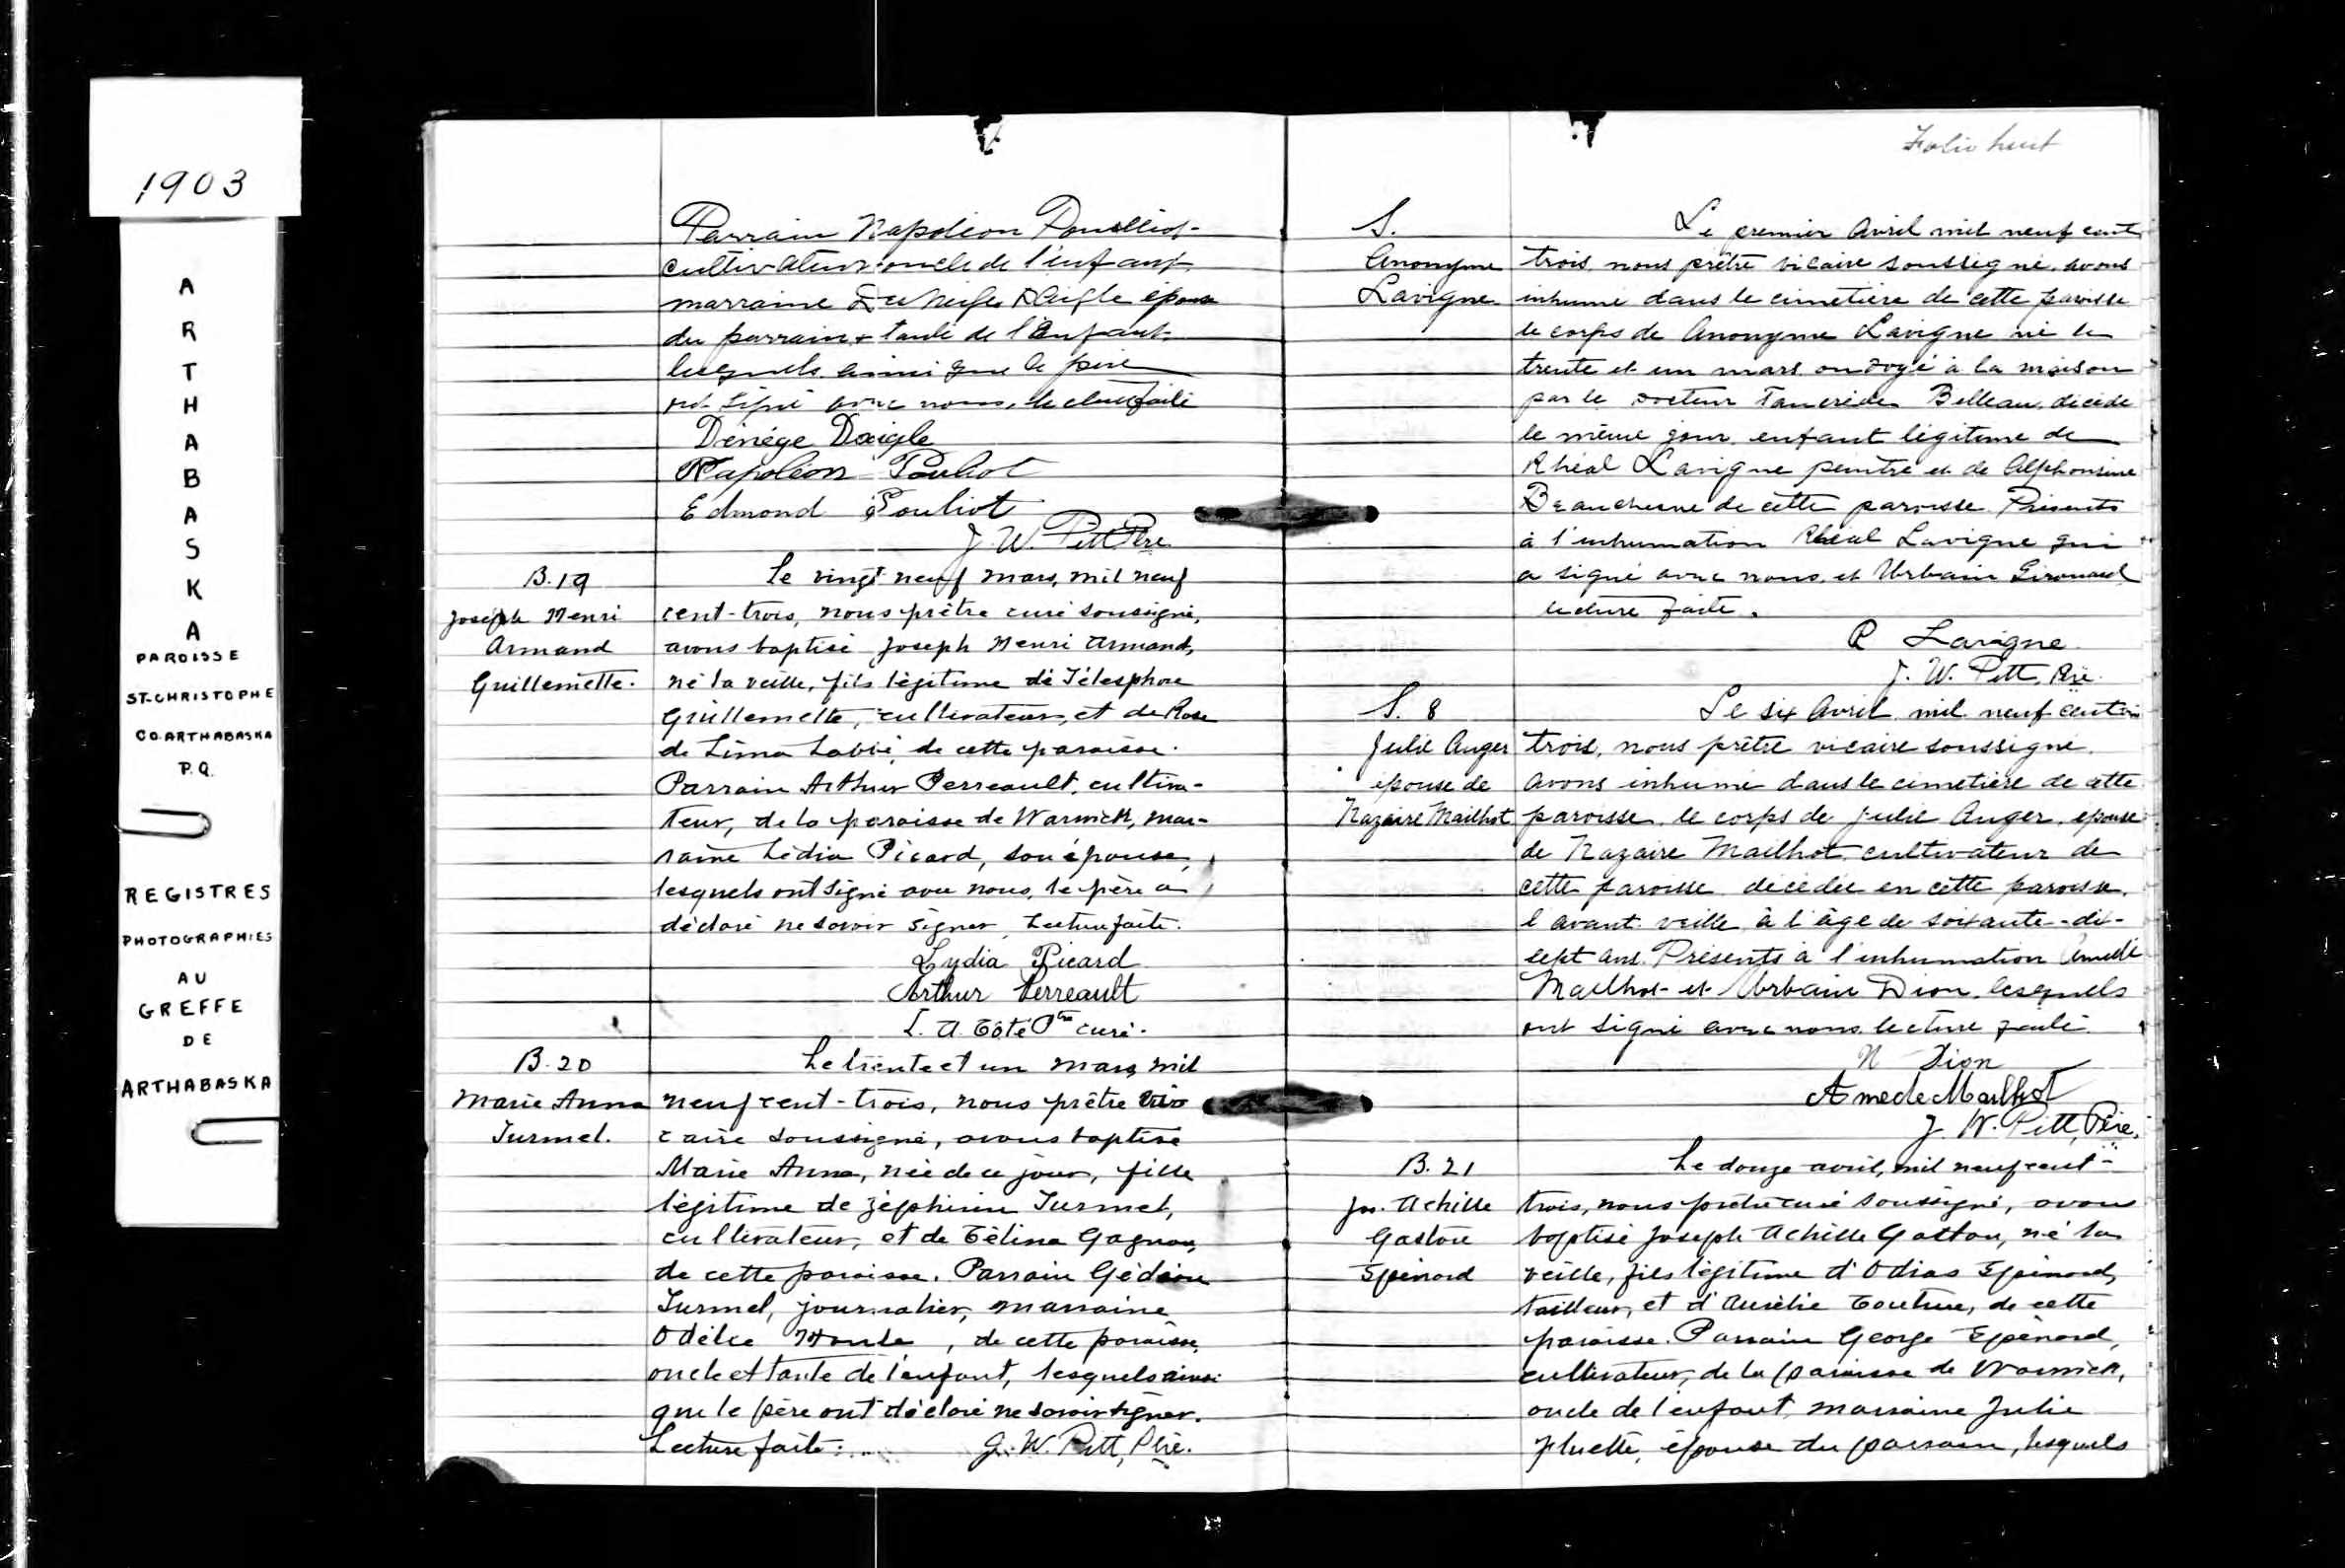 1903
ARTHABASKA
PAROISSE
ST-CHRISTOPHE
CO. ARTHABASKA
P.Q.
REGISTRES
PHOTOGRAPHIES
AU
GREFFE
DE
ARTHABASKA
Parrain Napoléon Pouliot
cultivateur oncle de l'enfant
marraine Daigle épouse
du parrain & tante de l'enfant
lesquels ainsi que le père
ont signé avec nous, lecture faite
Dénége Daigle
Napoléon Pouliot
Edmond Pouliot
J. W. Pitt Ptre
B. 19
Joseph Henri
Armand
Guillemette.
Le vingt neuf mars, mil neuf
cent-trois, nous prêtre curé soussigné,
avons baptisé Joseph Henri Armand,
né la veille, fils légitime de Télesphore
Guillemette, cultivateur, et de Rose
de Lima Labbé, de cette paroisse.
Parrain Arthur Perreault, cultiva-
teur, de la paroisse de Warwick, mar-
raine Lédia Picard, son épouse,
lesquels ont signé avec nous, le père a
déclaré ne savoir signer. Lecture faite.
Lydia Picard
Arthur Perreault
L. A. Côté Ptre curé.
B. 20
Marie Anna
Turmel.
Le trente et un mars mil
neuf cent-trois, nous prêtre vi-
caire soussigné, avons baptisé
Marie Anna, née de ce jour, fille
légitime de Zéphirin Turmel,
cultivateur, et de Célina Gagnon,
de cette paroisse. Parrain Gédéon
Turmel, journalier, marraine
Odélie Houle, de cette paroisse,
oncle et tante de l'enfant, lesquels ainsi
que le père ont déclaré ne savoir signer.
Lecture faite. J. W. Pitt, Ptre.
Folio huit
S.
Anonyme
Lavigne
Le premier Avril mil neuf cent
trois nous prêtre vicaire soussigné avons
inhumé dans le cimetière de cette paroisse
le corps de Anonyme Lavigne né le
trente et un mars ondoyé à la maison
par le Docteur Tancrède Belleau, décédé
le même jour enfant légitime de
Rhéal Lavigne peintre et de Alphonsine
Beauchesne de cette paroisse. Présents
à l'inhumation Rhéal Lavigne qui
a signé avec nous et Urbain Girouard
lecture faite.
R Lavigne
J. W. Pitt, Ptre.
S. 8
Julie Auger
épouse de
Nazaire Mailhot
Le six Avril mil neuf cent
trois, nous prêtre vicaire soussigné
avons inhumé dans le cimetière de cette
paroisse le corps de Julie Auger, épouse
de Nazaire Mailhot cultivateur de
cette paroisse décédée en cette paroisse
l'avant veille à l'âge de soixante-dix-
sept ans. Présents à l'inhumation Amédé
Mailhot et Urbain Dion lesquels
ont signé avec nous lecture faite
N Dion
Amede Mailhot
J. W. Pitt, Ptre.
B. 21
Jos. Achille
Gaston
Epénard
Le douze avril, mil neuf cent-
trois, nous prêtre curé soussigné, avons
baptisé Joseph Achille Gaston, né la
veille, fils légitime d'Odias Epénard,
tailleur, et d'Aurélie Couture, de cette
paroisse. Parrain George Epénard,
cultivateur, de la paroisse de Warwick,
oncle de l'enfant, marraine Julie
Pluette, épouse du parrain, lesquels